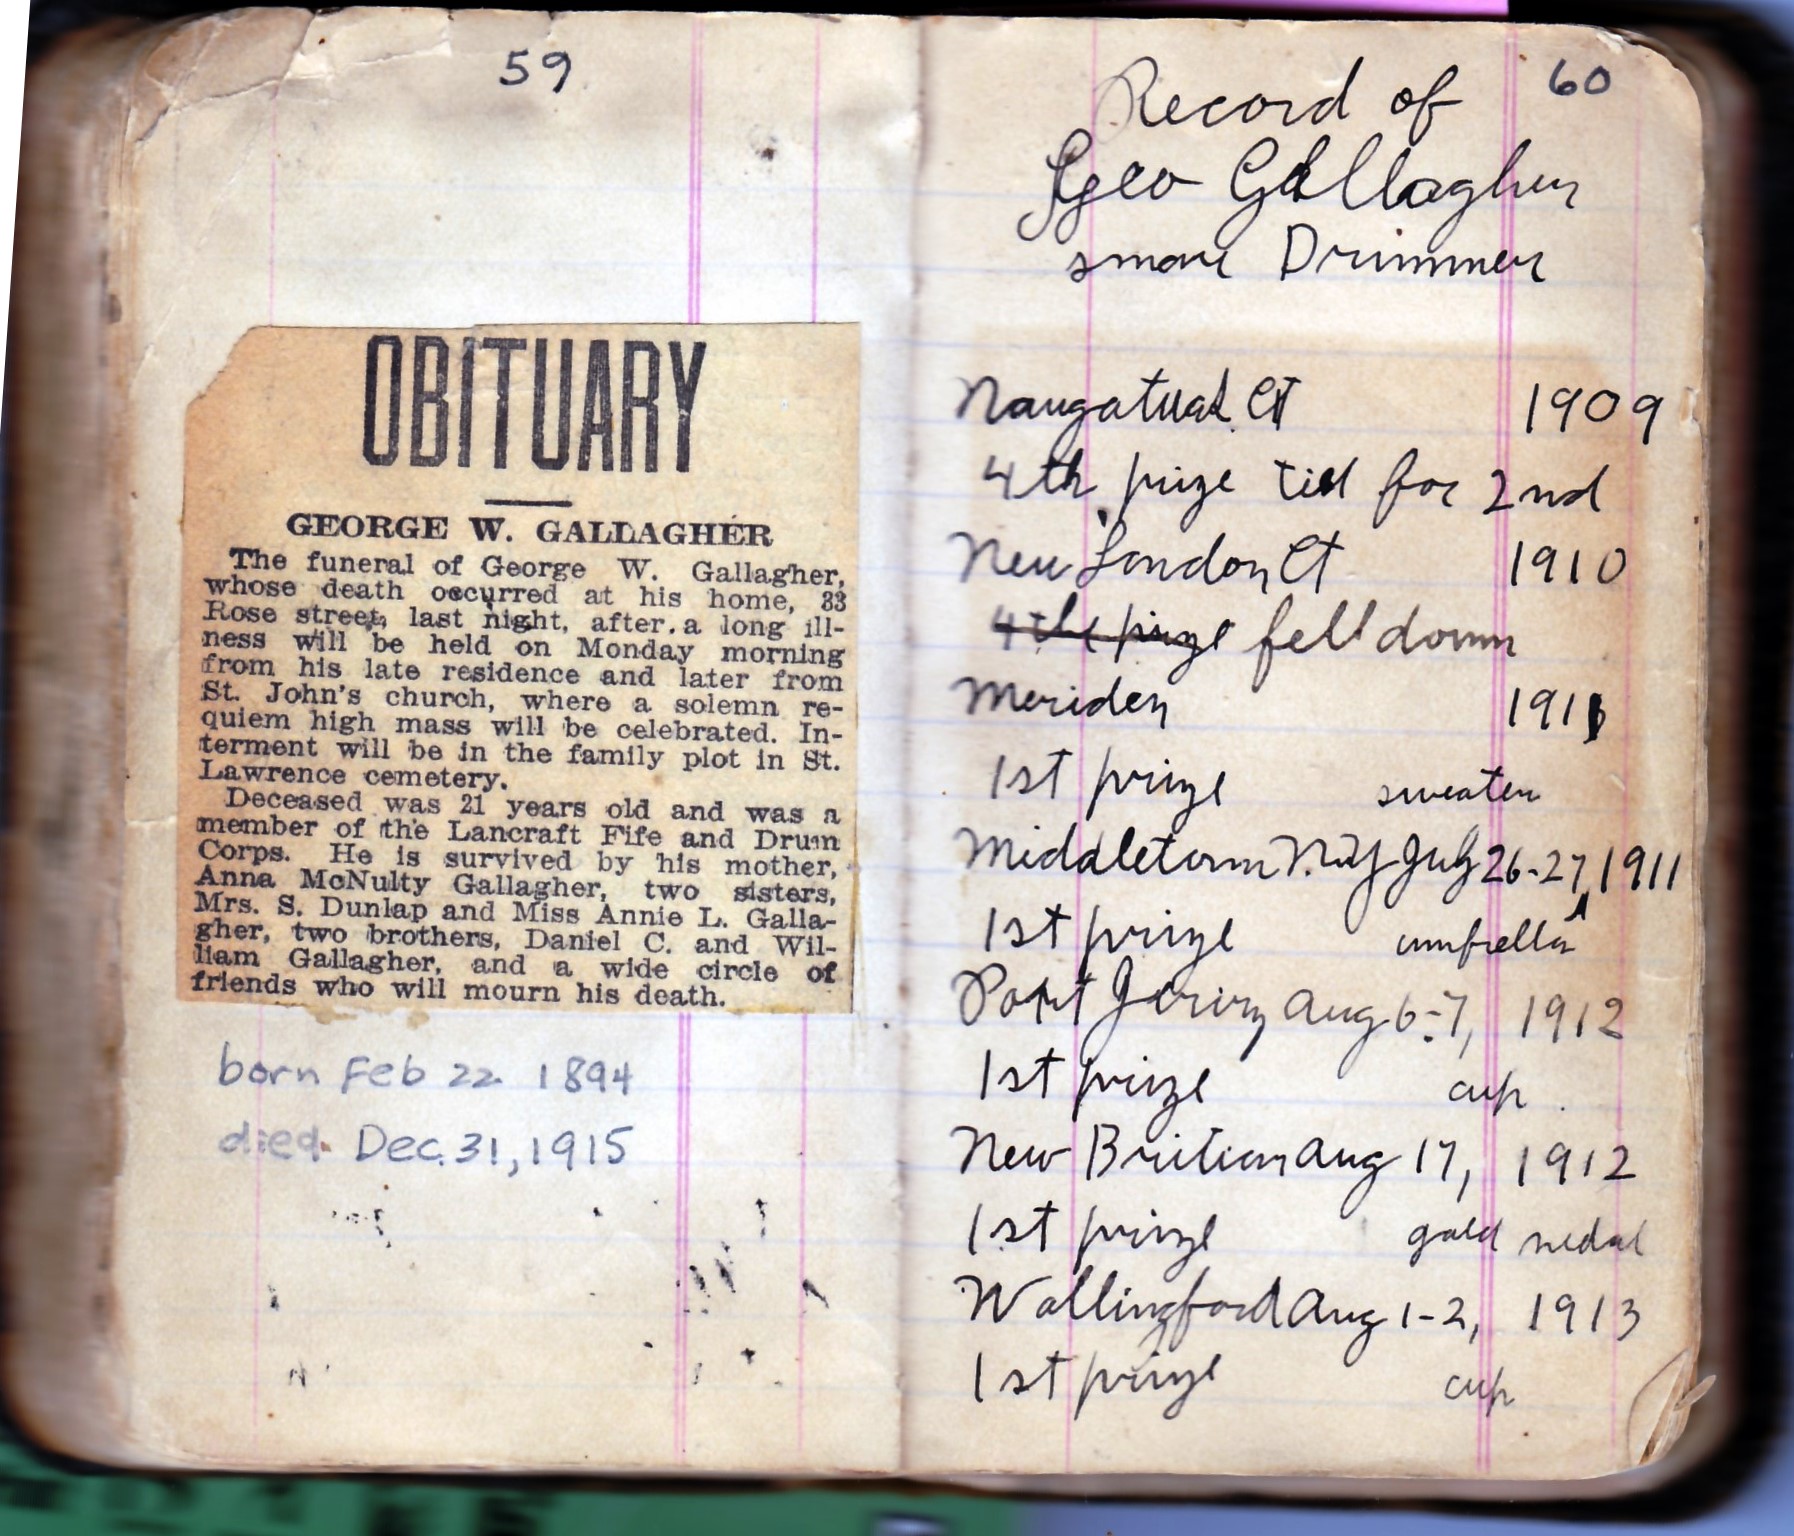 59
OBITUARY
GEORGE W. GALLAGHER
The funeral of George W. Gallagher,
whose death occurred at his home, 33
Rose street, last night, after a long ill-
ness will be held on Monday morning
from his late residence and later from
St. John's church, where a solemn re-
quiem high mass will be celebrated. In-
terment will be in the family plot in St.
Lawrence cemetery.
Deceased was 21 years old and was a
member of the Lancraft Fife and Drum
Corps. He is survived by his mother,
Anna McNulty Gallagher, two sisters,
Mrs. S. Dunlap and Miss Annie L. Galla-
gher, two brothers, Daniel C. and Wil-
liam Gallagher, and a wide circle of
friends who will mourn his death.
born Feb 22 1894
died Dec. 31, 1915
60
Record of
Geo Gallagher
snare Drummer
Naugatuck Ct 1909
4th prize tied for 2nd
New London Ct 1910
4th prize fell down
Meriden 1911
1st prize sweater
Middletown N.Y July 26-27, 1911
1st prize umbrella
Port Jervis Aug 6-7, 1912
1st prize cup
New Britian Aug 17, 1912
1st prize gold medal
Wallingford Aug 1-2, 1913
1st prize cup